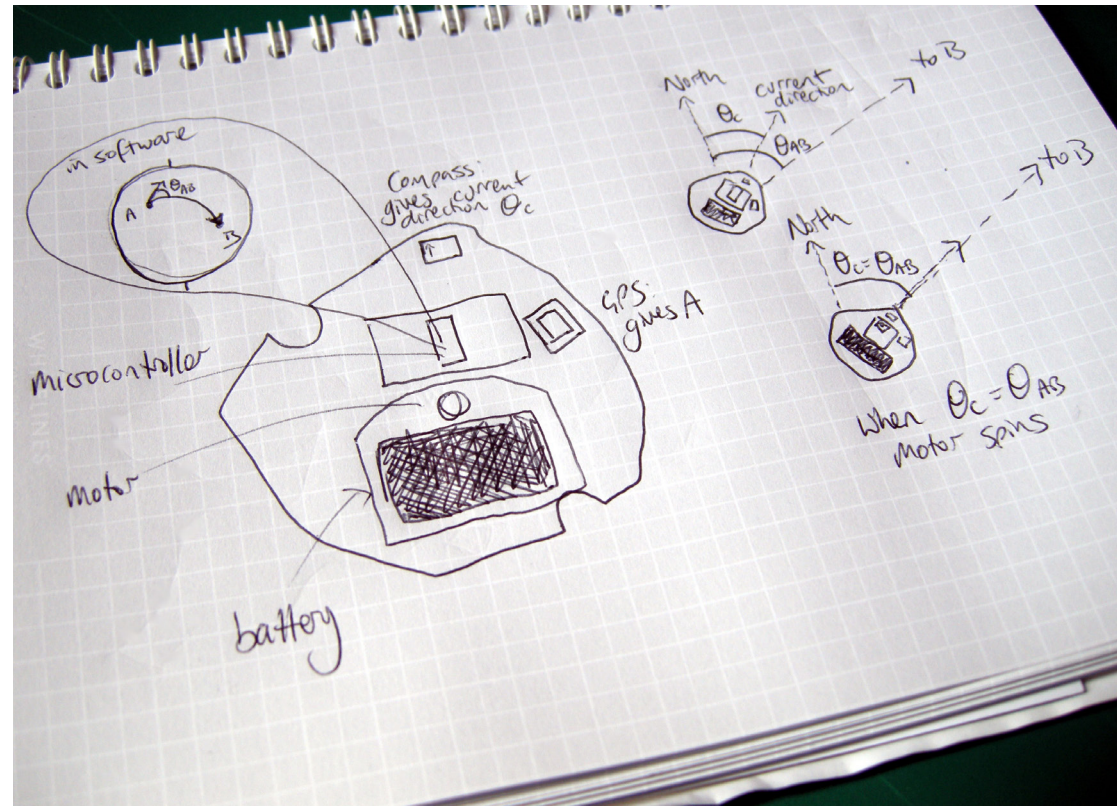 in software
θAB
A
B
Compass:
gives current
direction θc
GPS:
gives A
microcontroller
motor
battery
North
current
direction
to B
θc
θAB
to B
North
θc=θAB
When θc=θAB
motor spins